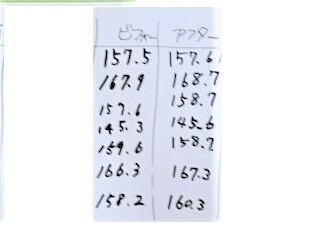 ビフォー アフター
157.5 157.6
167.9 168.7
157.6 158.7
145.3 145.6
159.6 158.7
166.3 167.3
158.2 160.3